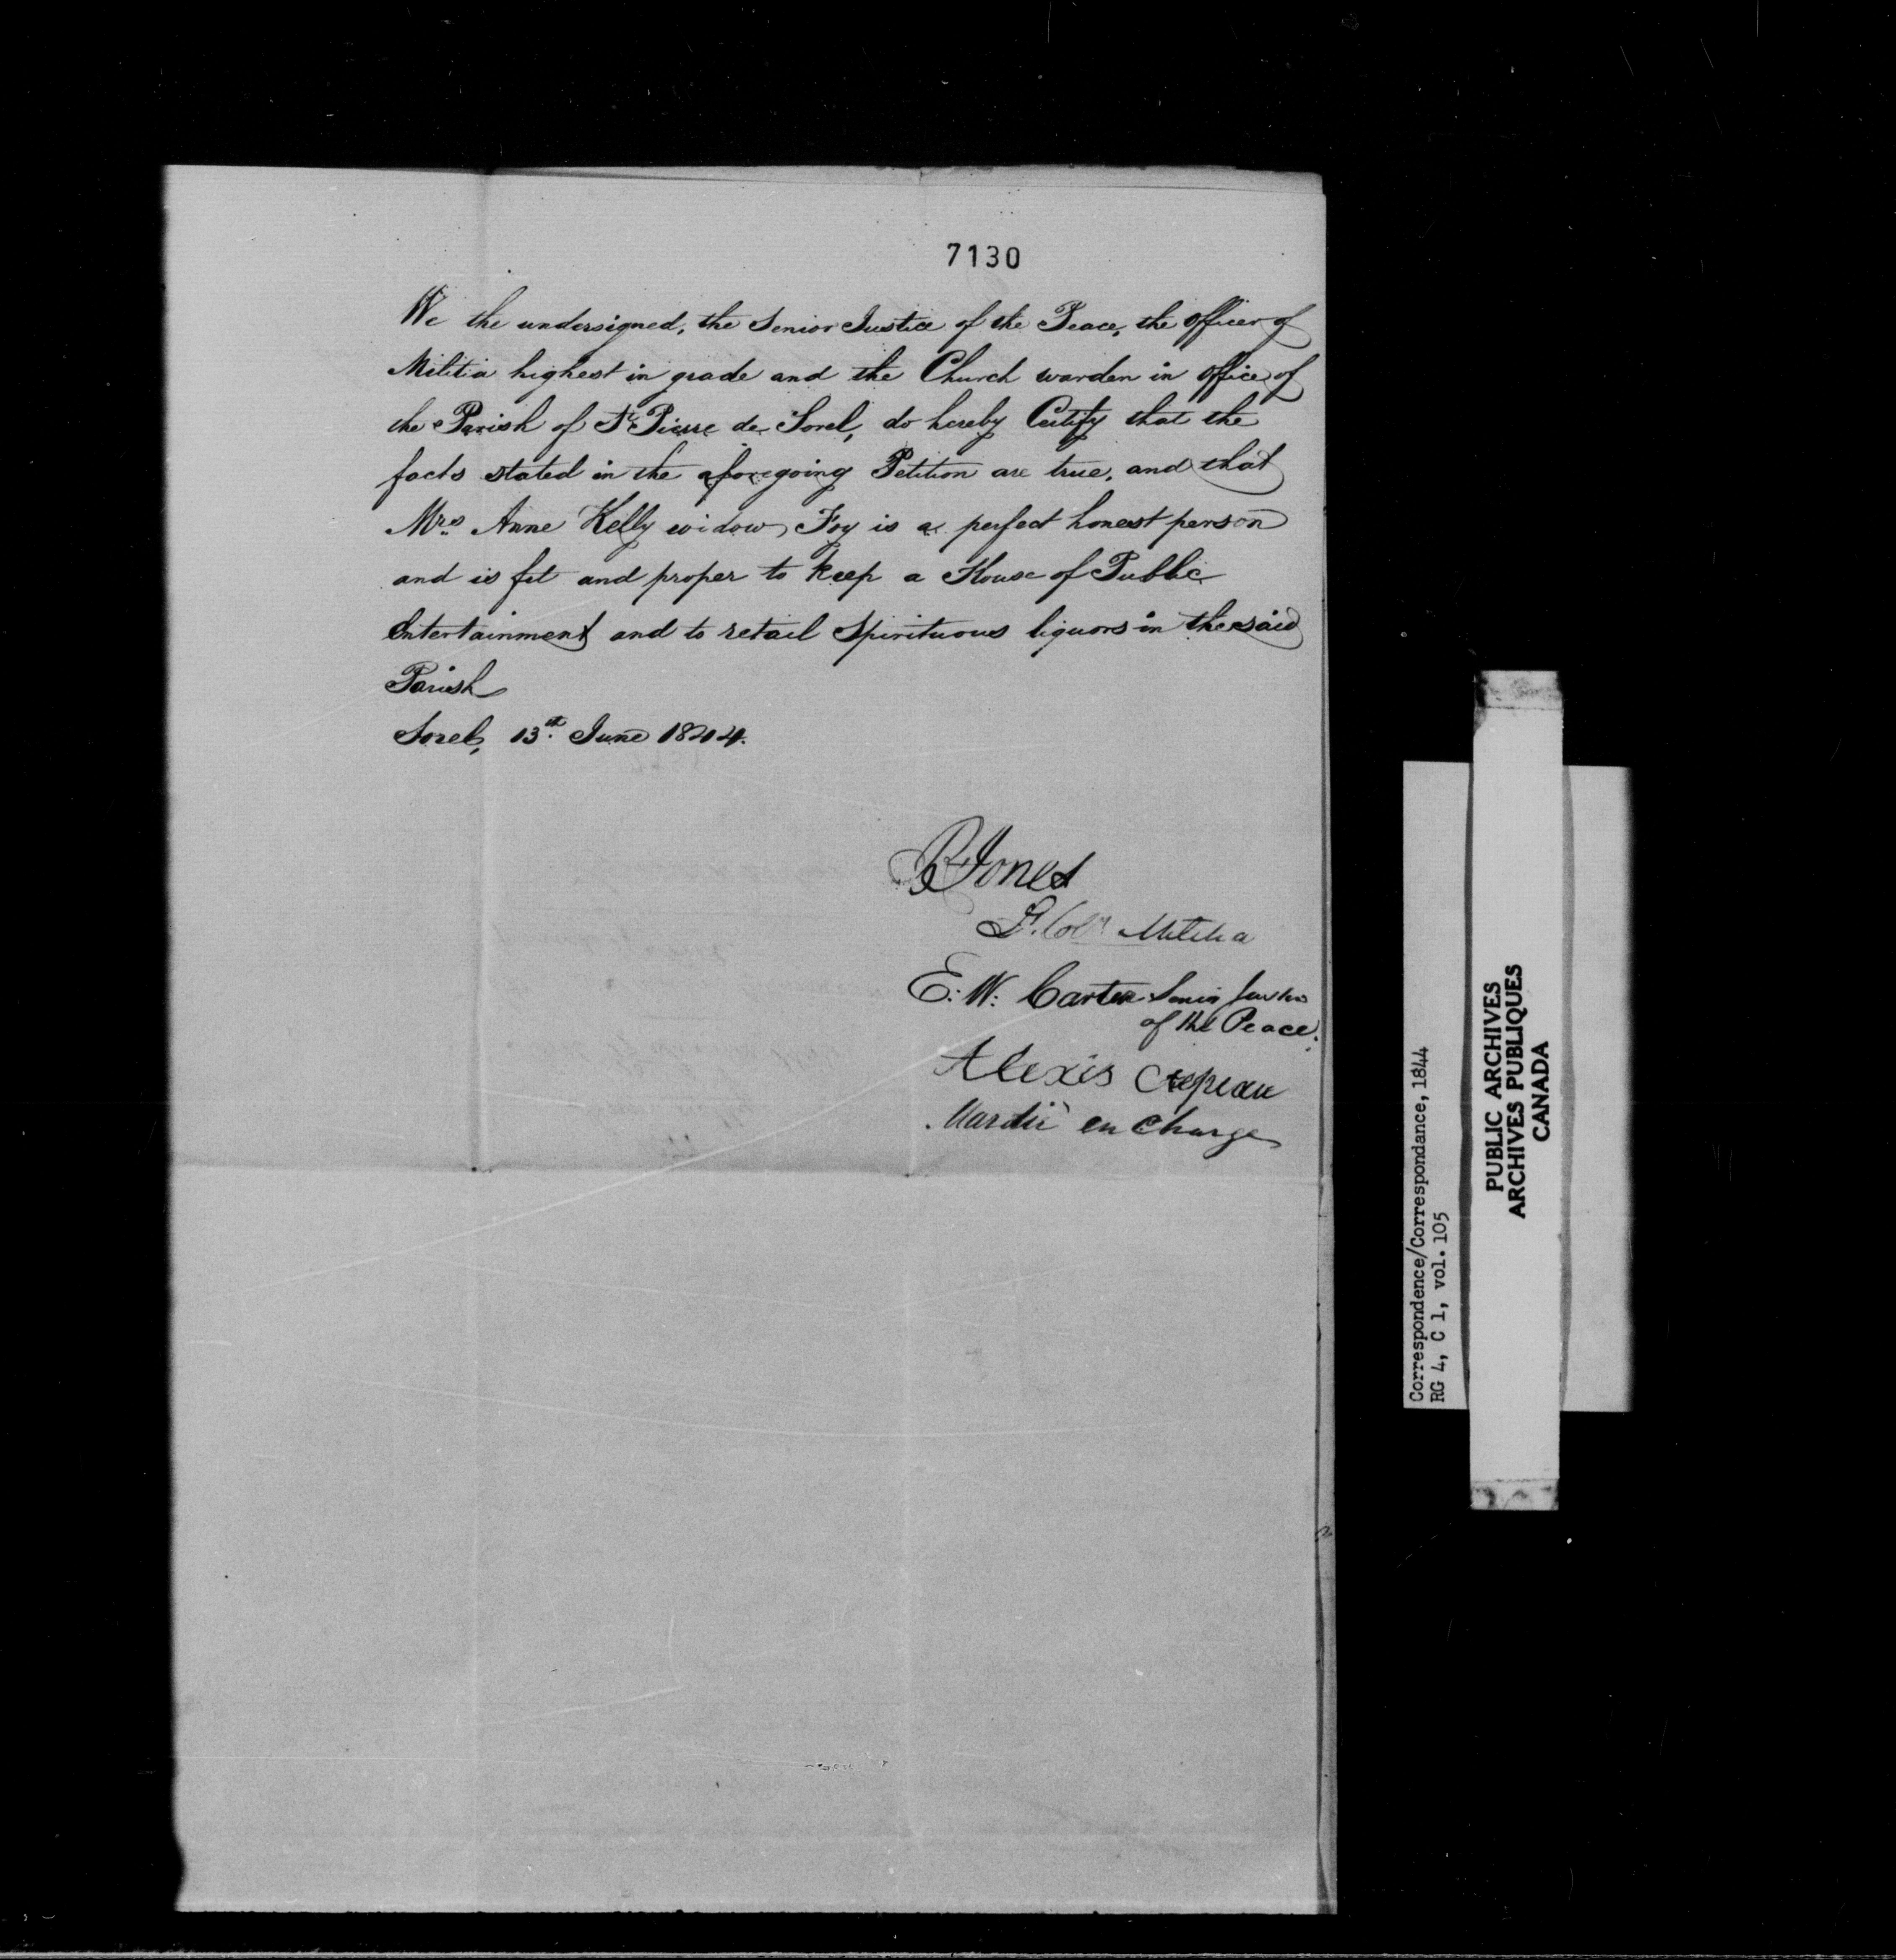 7130
We the undersigned, the Senior Justice of the Peace, the officer of
Militia highest in grade and the Church warden in office of
the Parish of St Pierre de Sorel, do hereby Certify that the
facts stated in the aforegoing Petition are true, and that
Mrs Anne Kelly widow Foy is a perfect honest person
and is fit and proper to keep a House of Public
Entertainment and to retail Spirituous liquors in the said
Parish
Sorel, 13th June 1844.
R Jones
Lt. Coln Militia
E: W: Carter Senior Justice
of the Peace.
Alexis Crepeau
Mardié en Charge
Correspondence/Correspondance, 1844
RG 4, C 1, vol. 105
PUBLIC ARCHIVES
ARCHIVES PUBLIQUES
CANADA